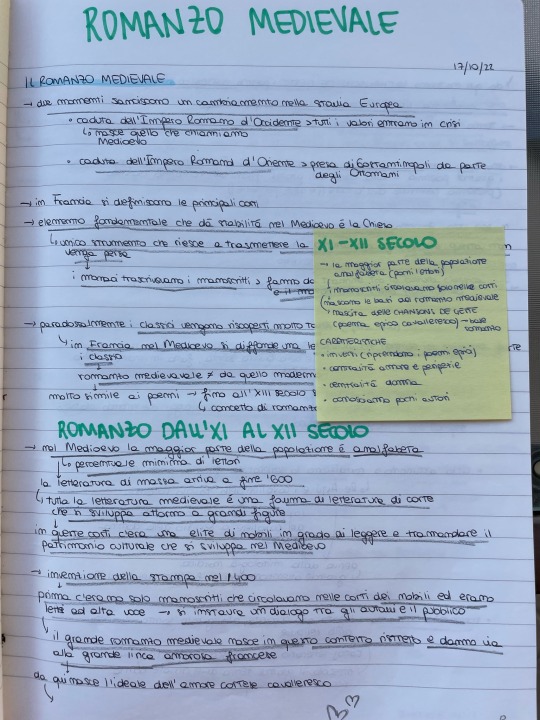 ROMANZO MEDIEVALE
17/10/22
IL ROMANZO MEDIEVALE
→ due momenti sanciscono un cambiamento nella storia Europea
• caduta dell'Impero Romano d'Occidente > tutti i valori entrano in crisi
↳ nasce quello che chiamiamo
Medioevo
• caduta dell'Impero Romano d'Oriente > presa di Costantinopoli da parte
degli Ottomani
→ in Francia si definiscono le principali corti
→ elemento fondamentale che dà stabilità nel Medioevo è la Chiesa
↳ unico strumento che riesce a trasmettere la
venga persa
↓ i monaci trascrivevano i manoscritti >
→ paradossalmente i classici vengono riscoperti molto
↳ in Francia nel Medioevo si diffonde una
i classici
romanzo medievale ≠ da quello
molto simile ai poemi → fino all'XIII secolo
↳ concetto di
XI - XII SECOLO
→ la maggior parte della popolazione
analfabeta (pochi lettori)
i manoscritti circolavano solo nelle corti
(nascono le basi del romanzo medievale
↳ nascita delle CHANSONS DE GESTE
(poema epico cavalleresco) → base
romanzo
CARATTERISTICHE
• in versi (riprendono i poemi epici)
• centralità amore e peripezie
• centralità donna
• conosciamo pochi autori
ROMANZO DALL'XI AL XII SECOLO
→ nel Medioevo la maggior parte della popolazione è analfabeta
↳ percentuale minima di lettori
la letteratura di massa arriva a fine '600
↳ tutta la letteratura medievale è una forma di letteratura di corte
che si sviluppa attorno a grandi figure
in queste corti c'era una elite di nobili in grado di leggere e tramandare il
patrimonio culturale che si sviluppa nel Medioevo
→ invenzione della stampa nel 1400
prima c'erano solo manoscritti che circolavano nelle corti dei nobili ed erano
letti ad alta voce → si instaura un dialogo tra gli autori e il pubblico
↳ il grande romanzo medievale nasce in questo contesto ristretto e danno via
alla grande lirica amorosa francese
da qui nasce l'ideale dell'amore cortese cavalleresco